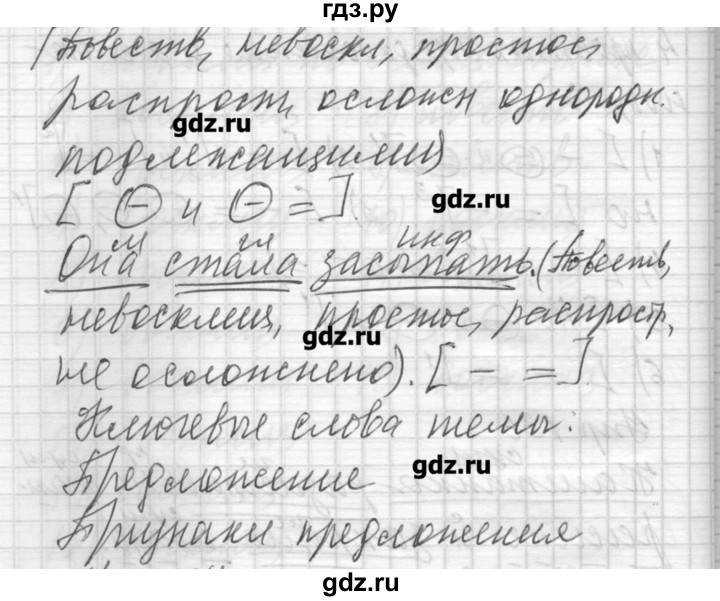 гдз.ру
(Повеств, невоскл, простое,
распрост, осложн однородн.
gdz.ru
подлежащими)
gdz.ru
[ ⊖ и ⊖ = ].
м гл инф
Она стала засыпать. (Повеств,
невосклиц, простое, распрост,
gdz.ru
не осложнено). [ – = ]
Ключевые слова темы:
gdz.ru
Предложение
Признаки предложения
gdz.ru